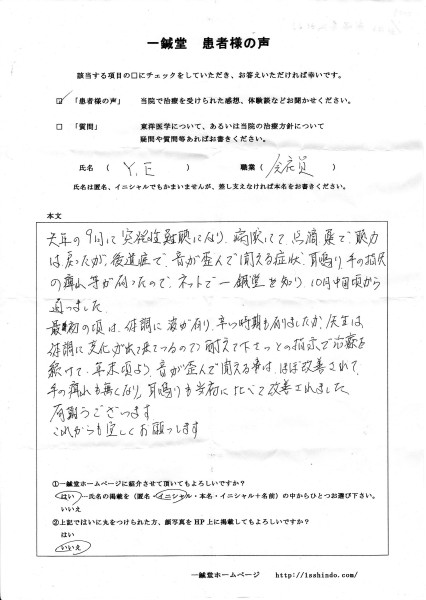 一鍼堂 患者様の声
該当する項目の□にチェックをしていただき、お答えいただければ幸いです。
☑ 「患者様の声」 当院で治療を受けられた感想、体験談などお聞かせください。
□ 「質問」 東洋医学について、あるいは当院の治療方針について
疑問や質問等あればお書きください。
氏名 ( Y.E ) 職業 ( 会社員 )
氏名は匿名、イニシャルでもかまいませんが、差し支えなければ本名をお書きください。
本文
去年の9月に突発性難聴になり、病院にて、点滴、薬で、聴力
は戻ったが、後遺症で、音が歪んで聞える症状、耳鳴り、手の指先
の痺れ等が有ったので、ネットで一鍼堂を知り、10月中旬頃から
通いました。
最初の頃は、体調に波が有り、辛い時期も有りましたが、先生は、
体調に変化が出て来ているので耐えて下さいとの指示で治療を
続けて、年末頃より、音が歪んで聞える事は、ほぼ改善されて、
手の痺れも無くなり、耳鳴りも当初に比べて改善されました
有難うございます
これからも宜しくお願いします
①一鍼堂ホームページに紹介させて頂いてもよろしいですか？
はい …氏名の掲載を（匿名・イニシャル・本名・イニシャル＋名前）の中からひとつお選び下さい。
いいえ
②上記ではいに丸をつけられた方、顔写真をHP上に掲載してもよろしいですか？
はい
いいえ
一鍼堂ホームページ http://1sshindo.com/